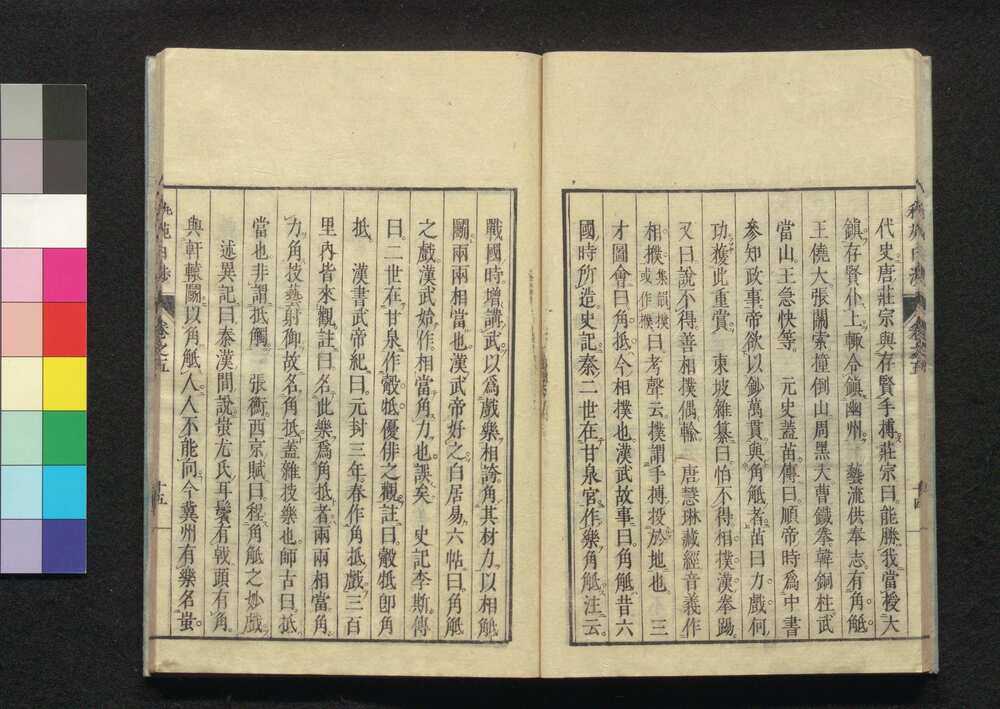 代史唐莊宗與存賢手搏莊宗曰能勝我當授大
鎮存賢仆上輙令鎮幽州　藝流供奉志有角觝
王僥大張關索撞倒山周黑大曹鐵拳韓銅柱武
當山王急快等　元史蓋苗傳曰順帝時爲中書
參知政事帝欲以鈔萬貫與角觝者苗曰力戲何
功獲此重賞　東坡雜纂曰怕不得相撲漢拳踢
又曰說不得善相撲偶輸　唐慧琳藏經音義作
相㩧集韻撲或作㩧曰考聲云撲謂手搏投於地也　三
才圖會曰角抵今相撲也漢武故事曰角觝昔六
國時所造史記秦二世在甘泉宮作樂角觝注云
戰國時增講武以爲戲樂相誇角其材力以相觝
鬭兩兩相當也漢武帝好之白居易六帖曰角觝
之戲漢武始作相當角力也誤矣　史記李斯傳
曰二世在甘泉作觳牴優俳之觀註曰觳牴卽角
抵　漢書武帝紀曰元封三年春作角抵戲三百
里內皆來觀註曰名此樂爲角抵者兩兩相當角
力角技藝射御故名角抵蓋雜技樂也師古曰抵
當也非謂抵觸　張衡西京賦曰程角觝之妙戲
述異記曰秦漢間說蚩尤氏耳鬢有戟頭有角
與軒轅鬭以角觝人人不能向今冀州有樂名蚩
卷之五
十五
十四